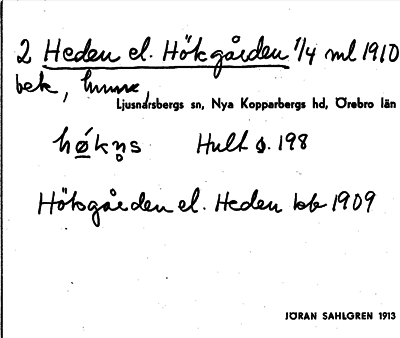 2 Heden el. Hökgården 1/4 ml 1910
bek,
Ljusnarsbergs sn, Nya Kopparbergs hd, Örebro län
hø̱kn̥s Hult s. 198
Höksgården el. Heden bb 1909
JÖRAN SAHLGREN 1913